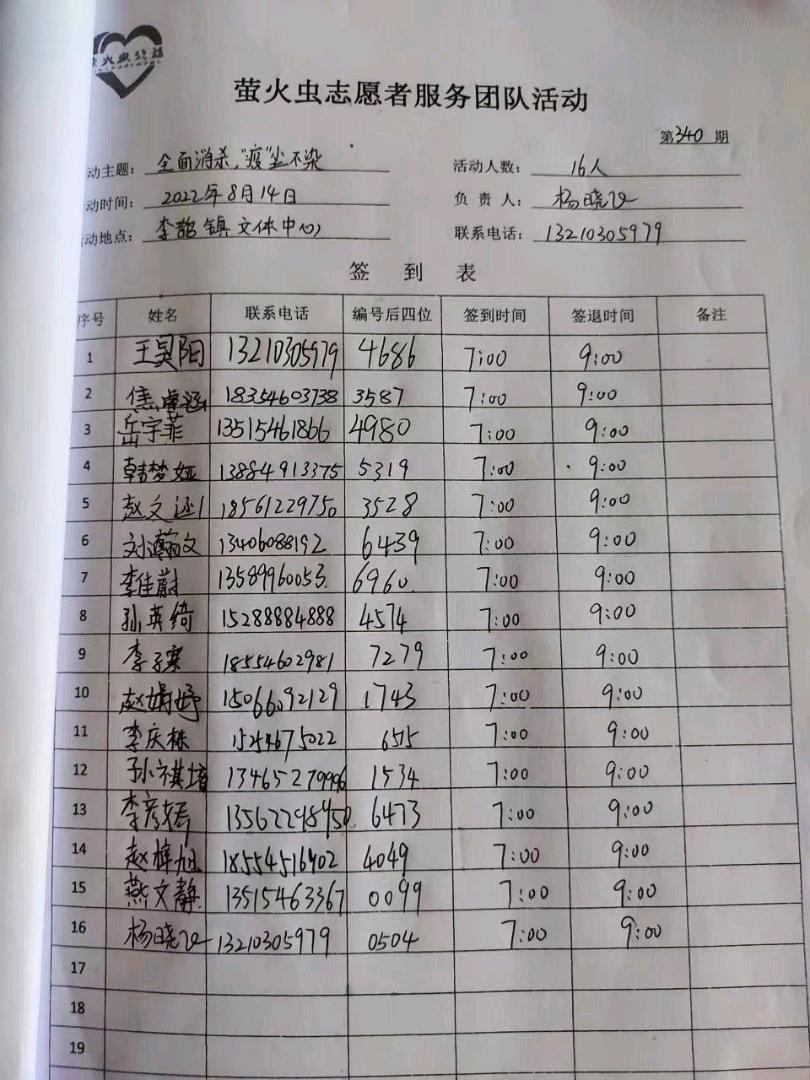 萤火虫公益
萤火虫志愿者服务团队活动
第340期
动主题：全面消杀，"疫"尘不染 活动人数：16人
动时间：2022年8月14日 负责人：杨晓
动地点：李鹊镇文体中心 联系电话：13210305979
签到表
序号 姓名 联系电话 编号后四位 签到时间 签退时间 备注
1 王昊阳 13210305979 4686 7:00 9:00
2 焦睿涵 18354603738 3587 7:00 9:00
3 岳宇菲 13515461866 4980 7:00 9:00
4 韩梦娅 13884913375 5319 7:00 9:00
5 赵文涵 18561229750 3528 7:00 9:00
6 刘瀚文 13406088192 6439 7:00 9:00
7 李佳蔚 13589960053 6960 7:00 9:00
8 孙英绮 15288884888 4574 7:00 9:00
9 李子寒 18554602981 7279 7:00 9:00
10 赵婧妤 15066092129 1743 7:00 9:00
11 李庆栋 15254675022 7:00 9:00
12 孙祺 1534 7:00 9:00
13 李彦 6473 7:00 9:00
14 赵梓旭 18554516402 4049 7:00 9:00
15 燕文静 13515463367 0099 7:00 9:00
16 杨晓 13210305979 0504 7:00 9:00
17
18
19